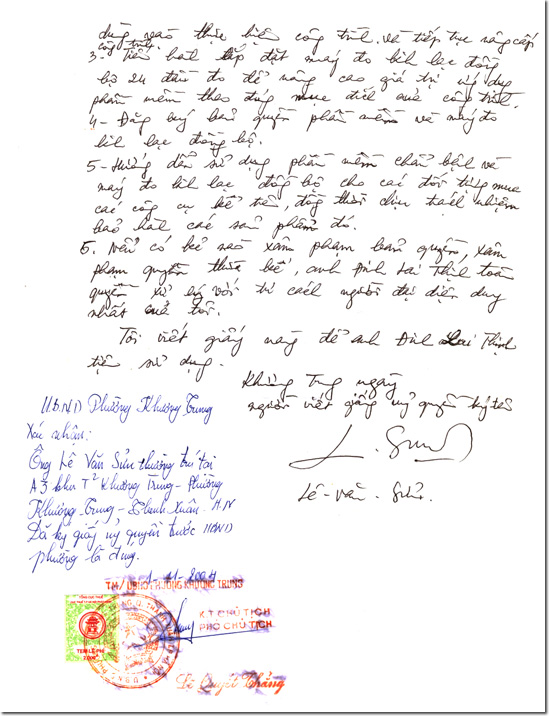 dụng vào thực hiện công trình và tiếp tục nâng cấp
công trình.
3- Tiến hành lắp đặt máy đo kinh lạc đồng
bộ 24 đầu đo để nâng cao giá trị ứng dụng
phần mềm theo đúng mục đích của công trình.
4- Đăng ký bản quyền phần mềm và máy đo
kinh lạc đồng bộ.
5- Hướng dẫn sử dụng phần mềm chẩn bệnh và
máy đo kinh lạc đồng bộ cho các đối tượng mua
các công cụ kể trên, đồng thời chịu trách nhiệm
bảo hành các sản phẩm đó.
5. Nếu có kẻ nào xâm phạm bản quyền, xâm
phạm quyền thừa kế, anh Đinh Lai Thịnh toàn
quyền xử lý với tư cách người đại diện duy
nhất của tôi.
Tôi viết giấy này để anh Đinh Lai Thịnh
tiện sử dụng.
Khương Trung ngày
người viết giấy uỷ quyền ký tên
Lê-Văn-Sửu.
U.B.N.D Phường Khương Trung
Xác nhận:
Ông Lê Văn Sửu thường trú tại
A3 khu T² Khương Trung - Phường
Khương Trung - Thanh Xuân - H.N
Đã ký giấy uỷ quyền trước UBND
phường là đúng.
1-11-2004
TM/UBND PHƯỜNG KHƯƠNG TRUNG
K.T CHỦ TỊCH
PHÓ CHỦ TỊCH
TỔNG CỤC THUẾ
TEM LỆ PHÍ
Lê Quyết Thắng